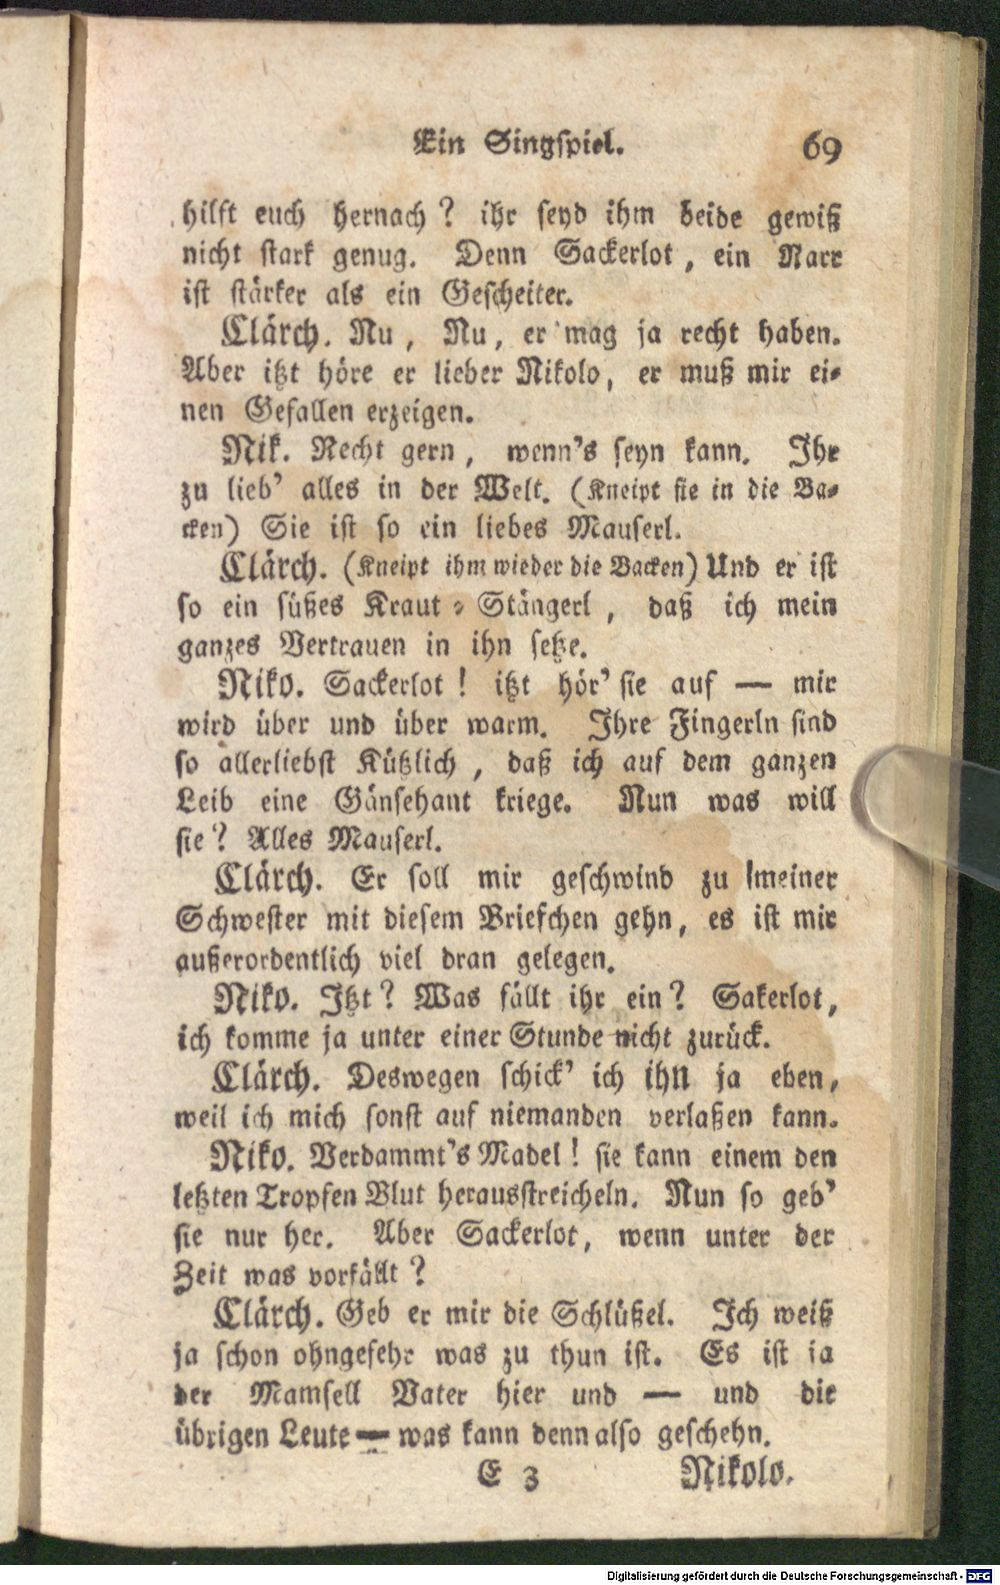 Ein Singspiel. 69
hilft euch hernach? ihr seyd ihm beide gewiß
nicht stark genug. Denn Sackerlot, ein Narr
ist stärker als ein Gescheiter.
Clärch. Nu, Nu, er mag ja recht haben.
Aber itzt höre er lieber Nikolo, er muß mir ei-
nen Gefallen erzeigen.
Nik. Recht gern, wenn's seyn kann. Ihr
zu lieb' alles in der Welt. (Kneipt sie in die Ba-
cken) Sie ist so ein liebes Mauserl.
Clärch. (Kneipt ihm wieder die Backen) Und er ist
so ein süßes Kraut-Stängerl, daß ich mein
ganzes Vertrauen in ihn setze.
Niko. Sackerlot! itzt hör' sie auf — mir
wird über und über warm. Ihre Fingerln sind
so allerliebst Kützlich, daß ich auf dem ganzen
Leib eine Gänsehant kriege. Nun was will
sie? Alles Mauserl.
Clärch. Er soll mir geschwind zu meiner
Schwester mit diesem Briefchen gehn, es ist mir
außerordentlich viel dran gelegen.
Niko. Itzt? Was fällt ihr ein? Sakerlot,
ich komme ja unter einer Stunde nicht zurück.
Clärch. Deswegen schick' ich ihn ja eben,
weil ich mich sonst auf niemanden verlaßen kann.
Niko. Verdammt's Madel! sie kann einem den
letzten Tropfen Blut herausstreicheln. Nun so geb'
sie nur her. Aber Sackerlot, wenn unter der
Zeit was vorfällt?
Clärch. Geb er mir die Schlüßel. Ich weiß
ja schon ohngefehr was zu thun ist. Es ist ja
der Mamsell Vater hier und — und die
übrigen Leute — was kann denn also geschehn.
E 3 Nikolo.
Digitalisierung gefördert durch die Deutsche Forschungsgemeinschaft - DFG